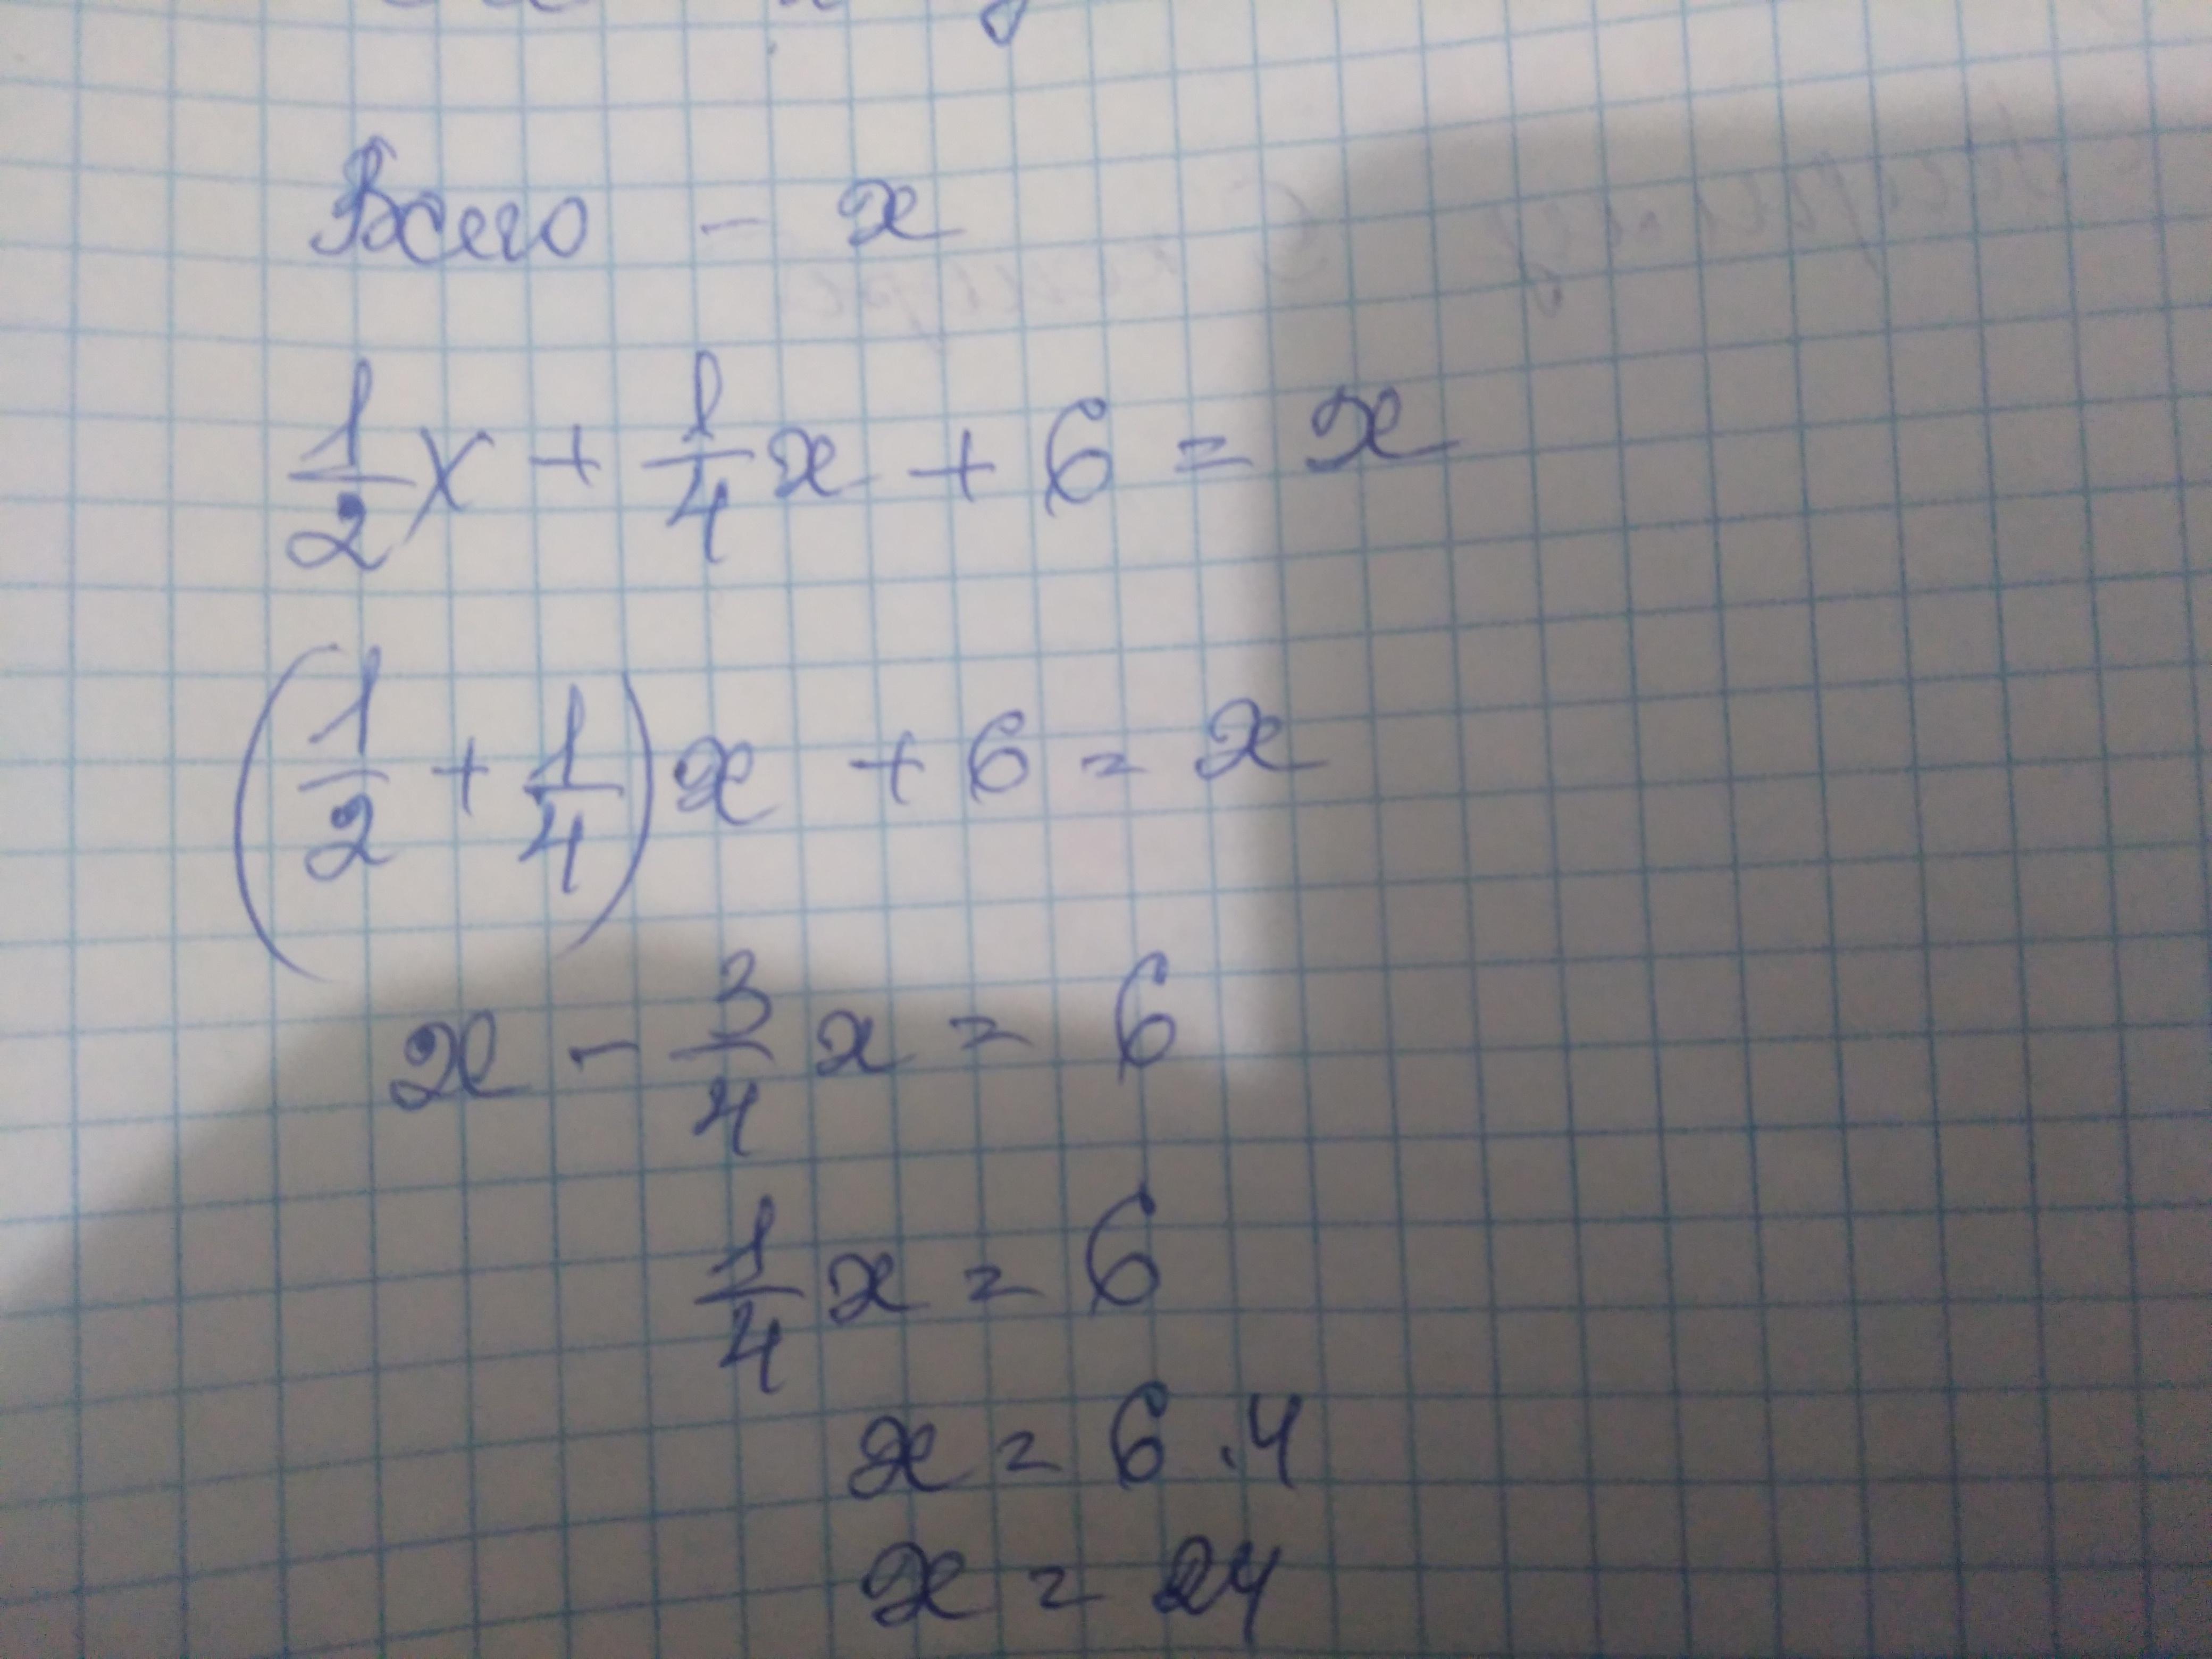 Всего - x
1/2 x + 1/4 x + 6 = x
(1/2 + 1/4) x + 6 = x
x - 3/4 x = 6
1/4 x = 6
x = 6 . 4
x = 24